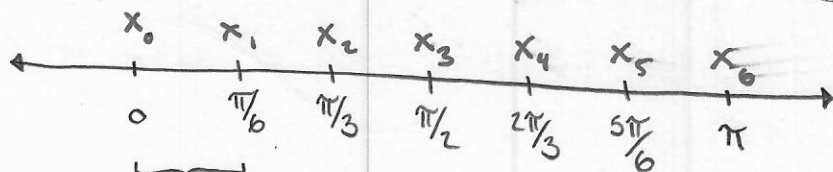 x₀ x₁ x₂ x₃ x₄ x₅ x₆
0 π/6 π/3 π/2 2π/3 5π/6 π